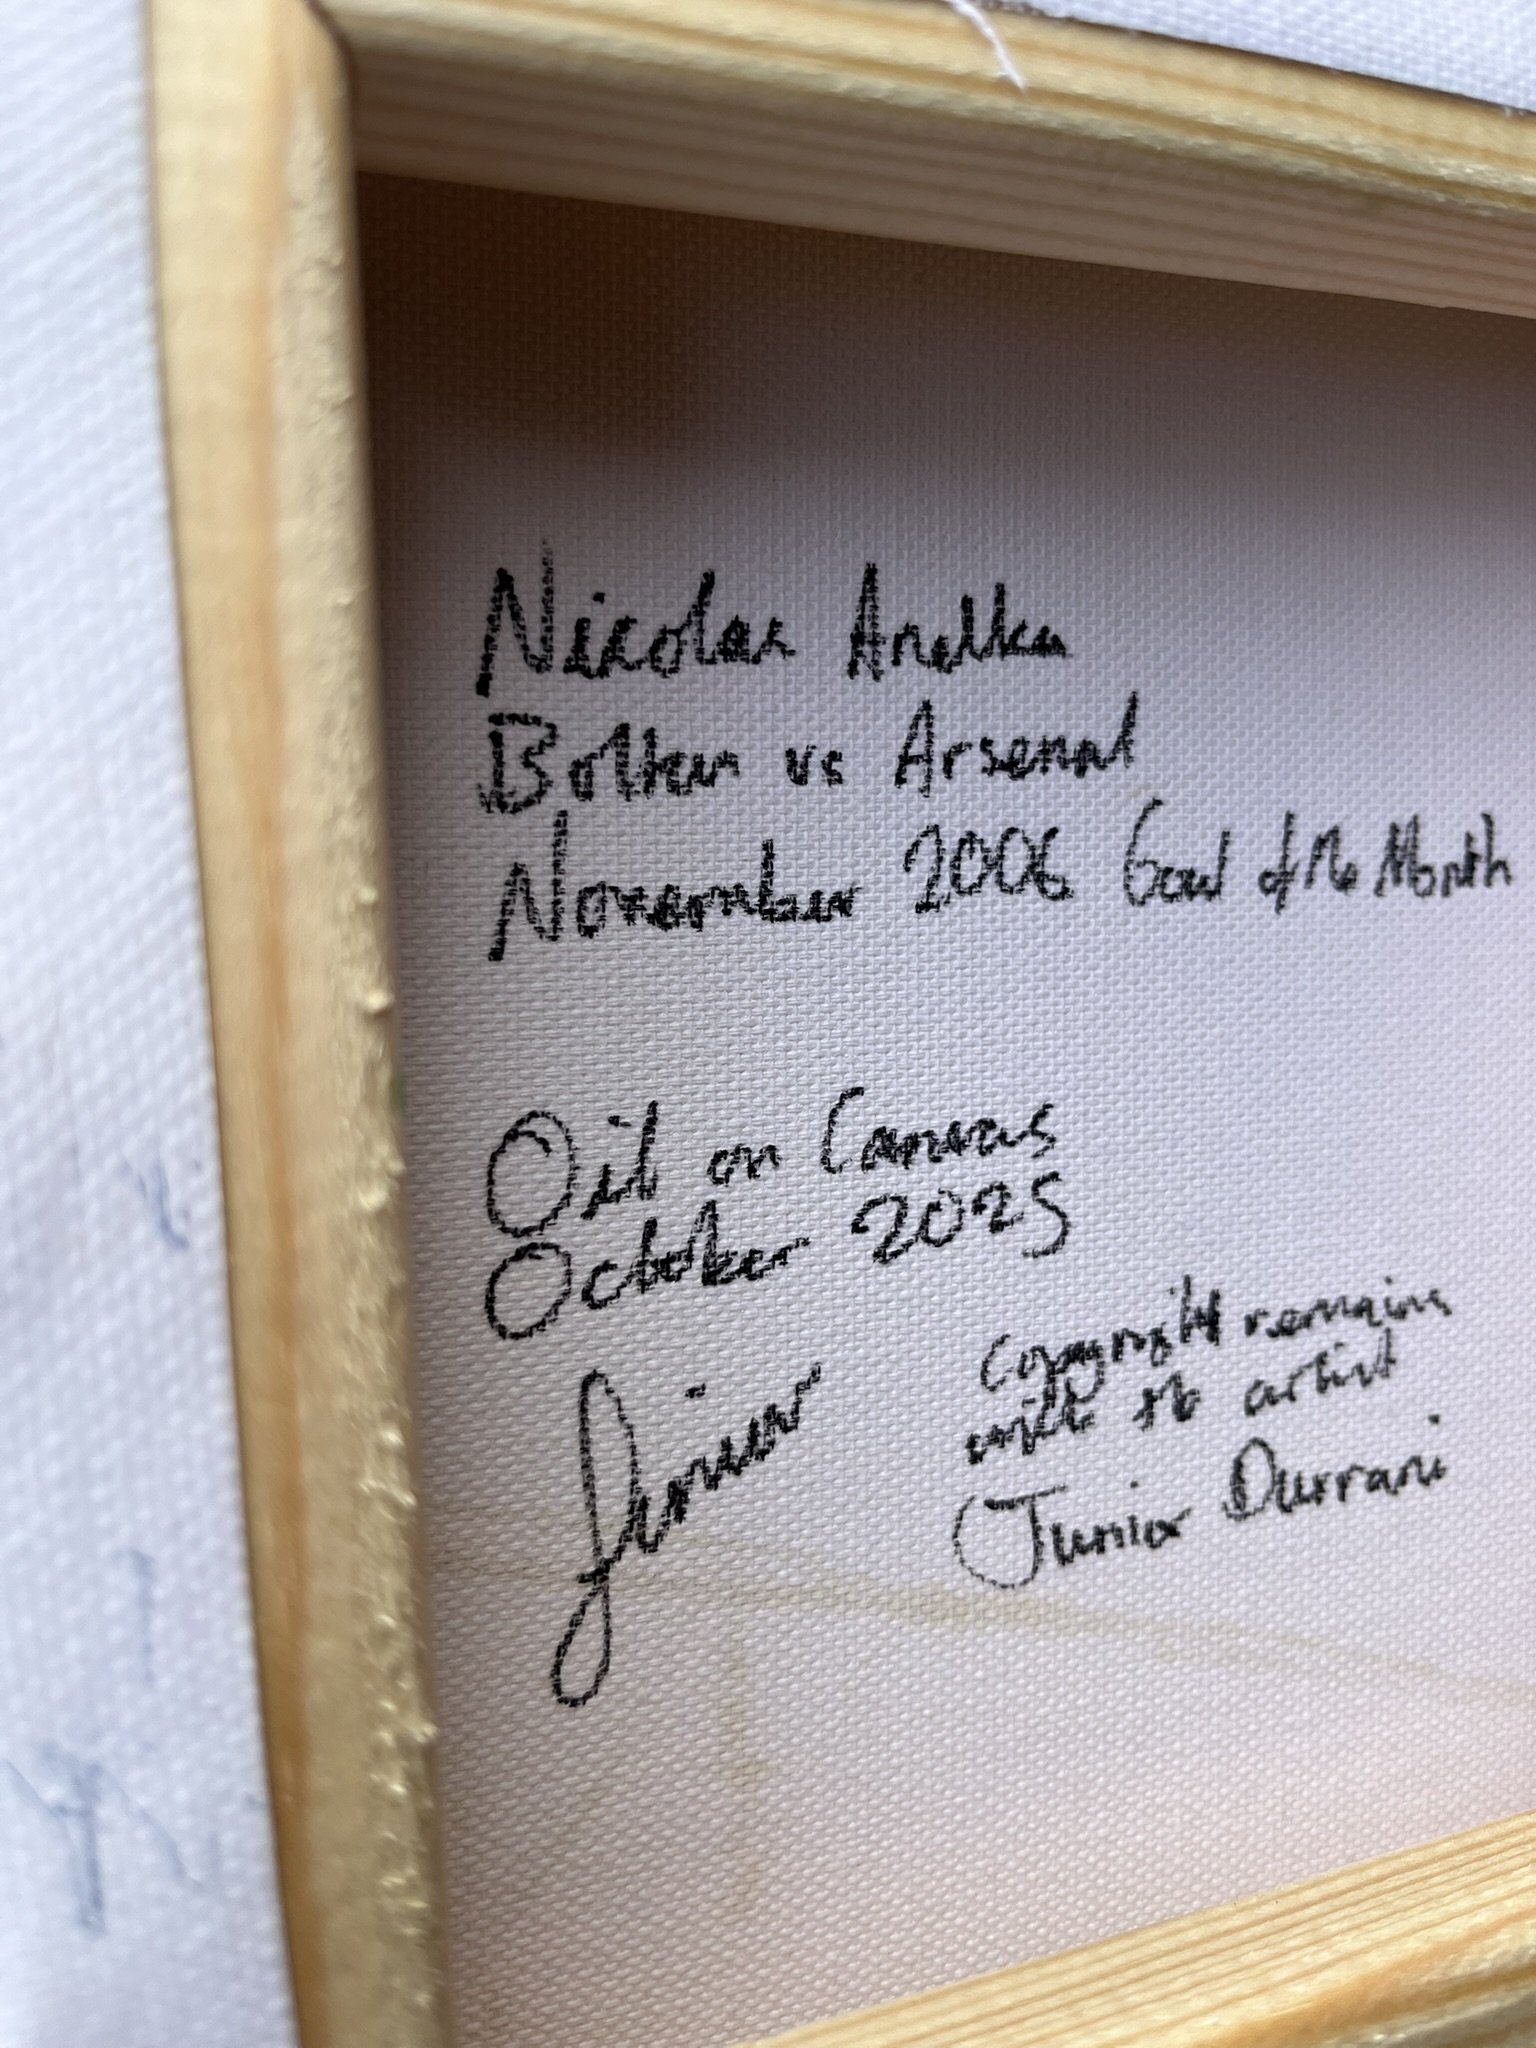 Nicolas Anelka
Bolton vs Arsenal
November 2006 Goal of the Month
Oil on Canvas
October 2025
Junior
Copyright remains
with the artist
Junior Durrani